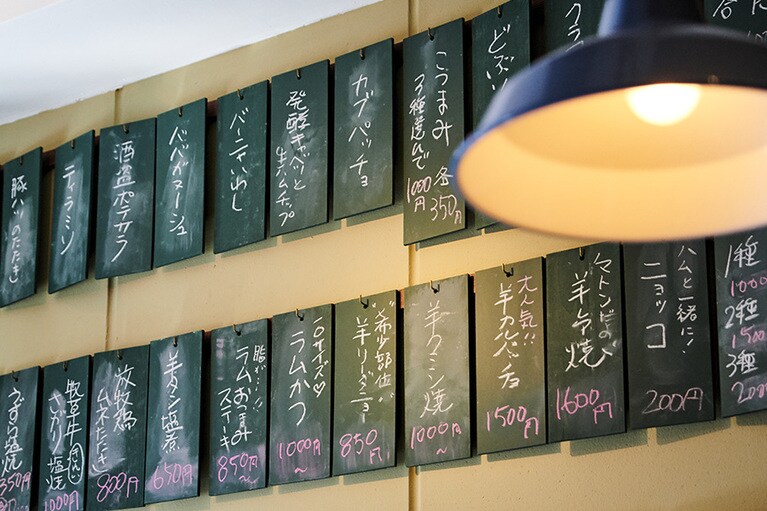 豚ハツのたたき
ティラミソ
酒盗ポテサラ
ババガヌージュ
バーニャいわし
発酵キャベツと
生ハムチップ
カブパッチョ
こつまみ
各350円
3種選んで
1000円
クラ
うずら塩焼
350円
牧草牛
さがり塩焼
1000円
放牧鶏
ムネたたき
800円
羊タン塩煮
650円
脂が…!
ラムおつまみ
ステーキ
850円〜
ラムかつ
1000円〜
"希少部位"
羊リードニョー
850円
羊クミン焼
1000円〜
大人気!!
羊カルパッチョ
1500円
1600円
ハムと一緒に!
ニョッコ
200円
1種
1000
2種
1500
3種
2000